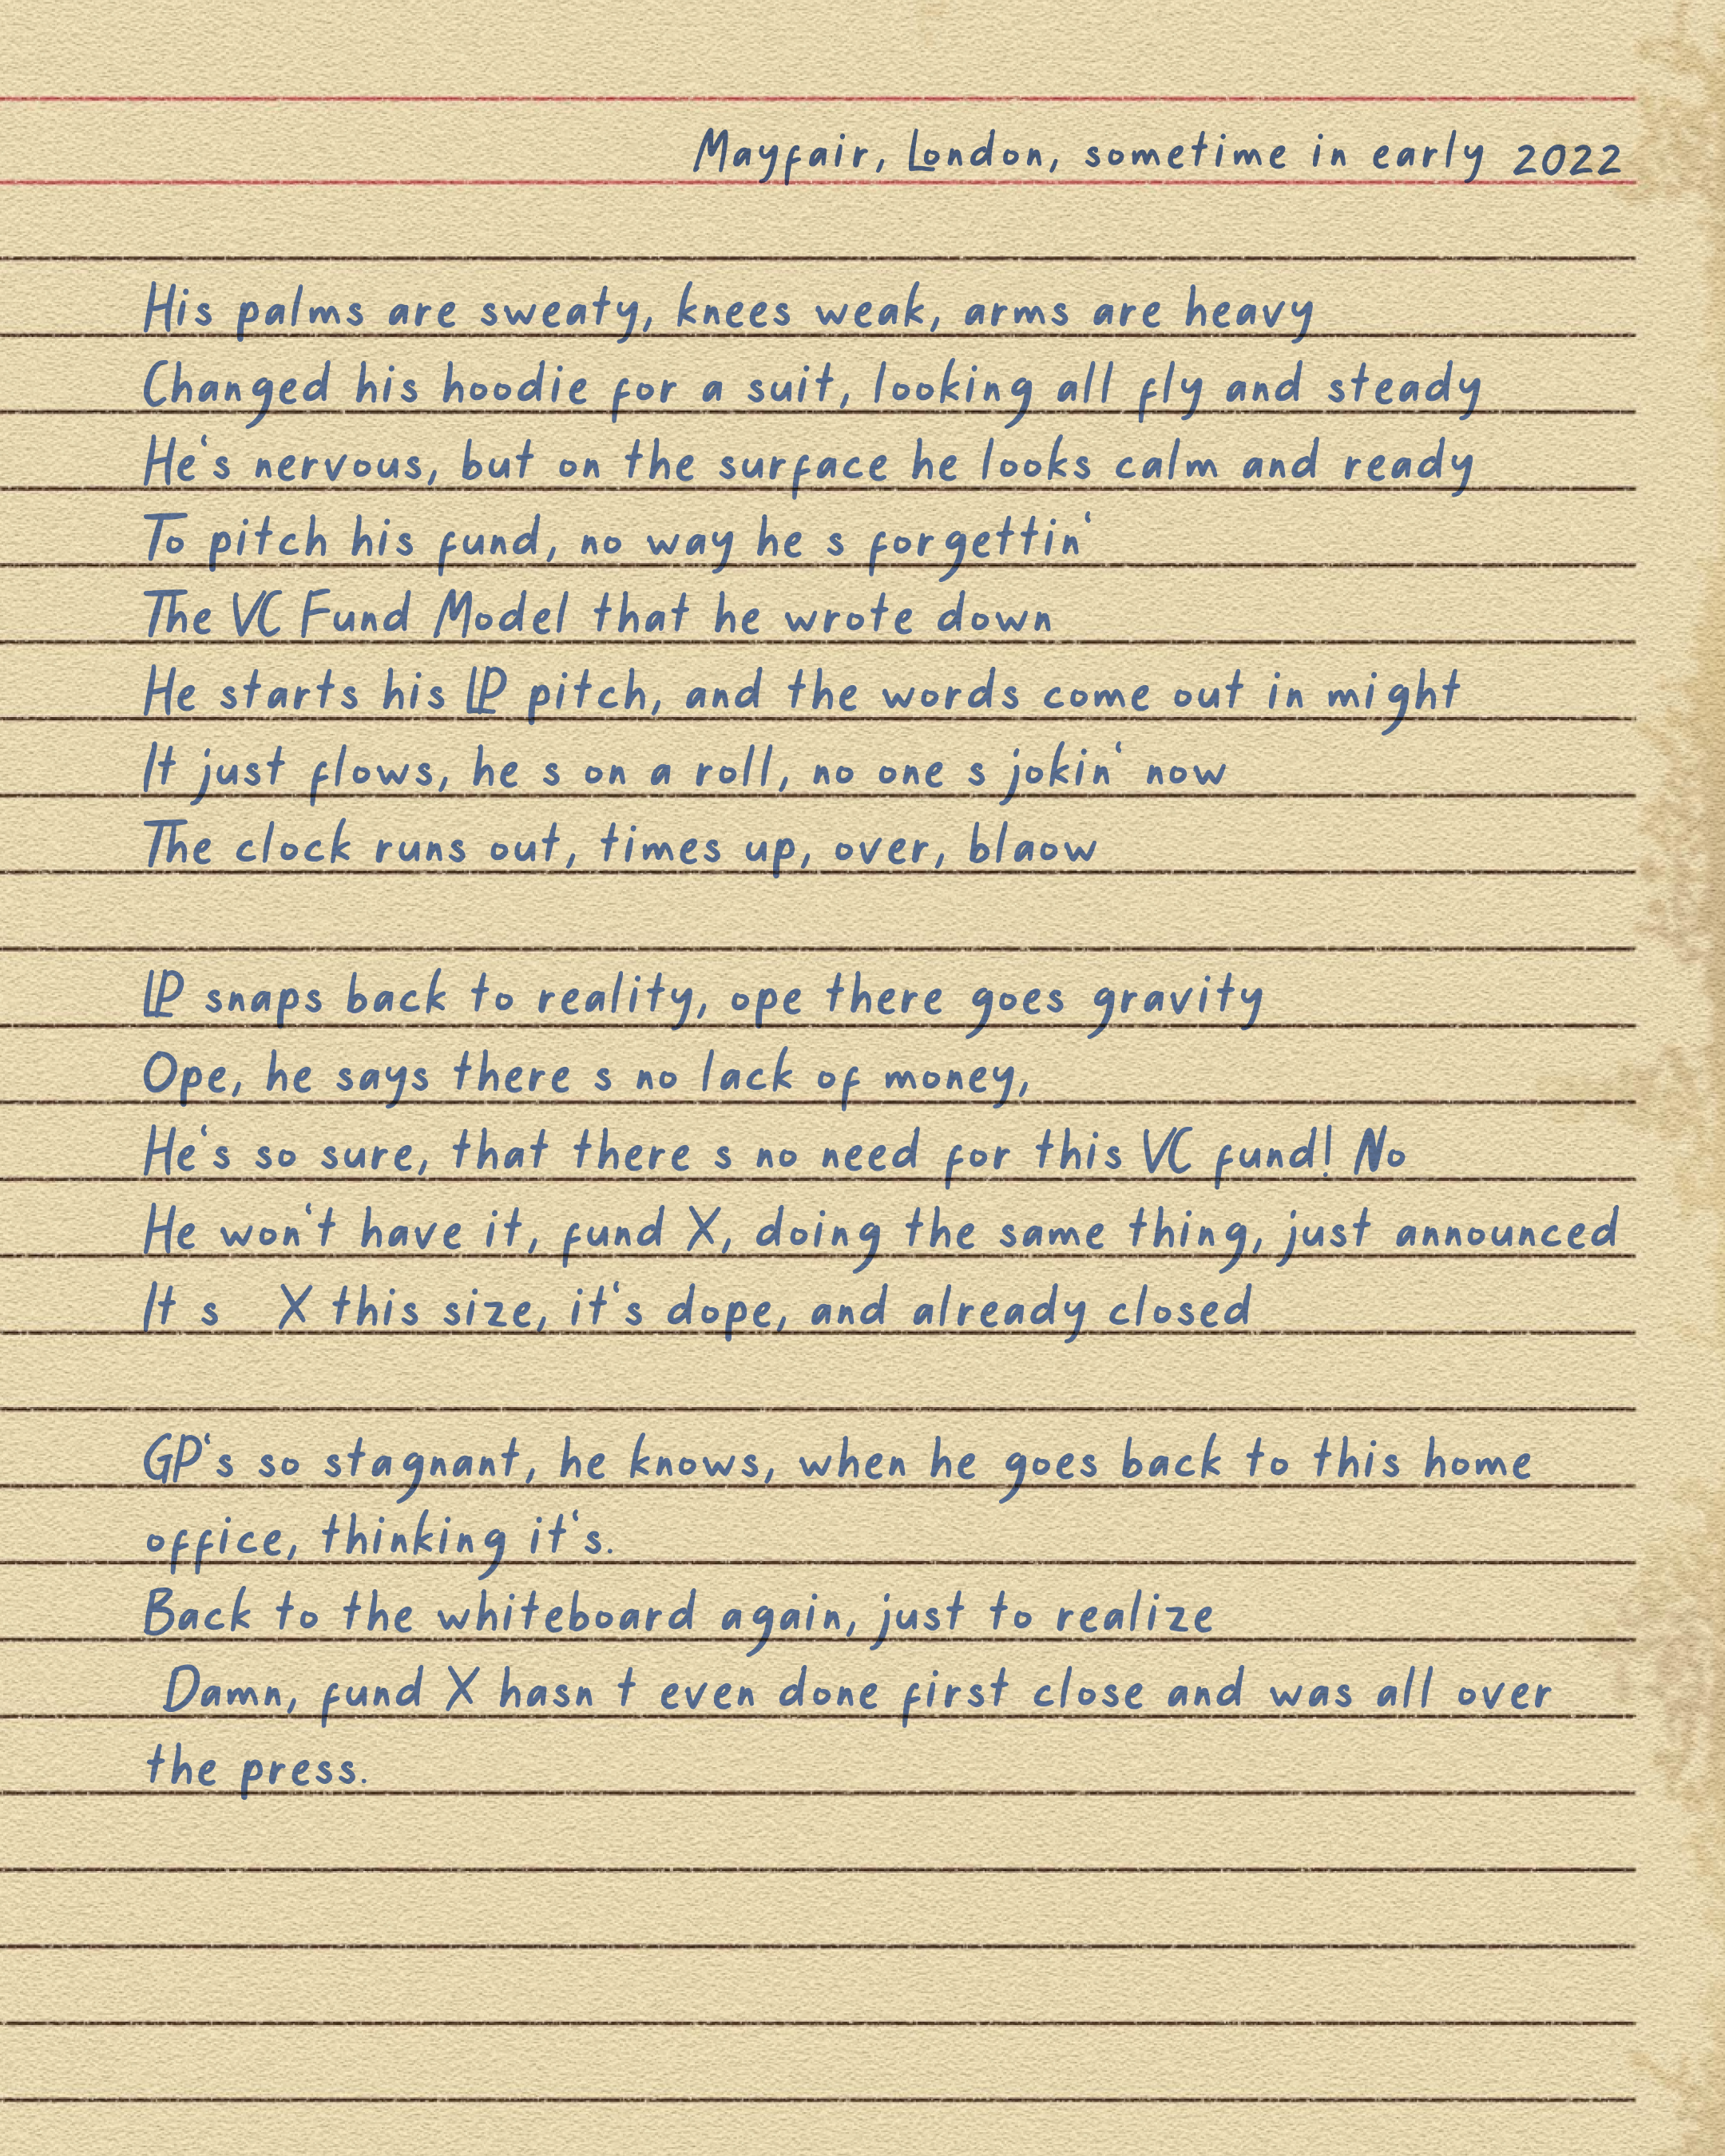 Mayfair, London, sometime in early 2022
His palms are sweaty, knees weak, arms are heavy
Changed his hoodie for a suit, looking all fly and steady
He's nervous, but on the surface he looks calm and ready
To pitch his fund, no way he s forgettin'
The VC Fund Model that he wrote down
He starts his LP pitch, and the words come out in might
It just flows, he s on a roll, no one s jokin' now
The clock runs out, times up, over, blaow
LP snaps back to reality, ope there goes gravity
Ope, he says there s no lack of money,
He's so sure, that there s no need for this VC fund! No
He won't have it, fund X, doing the same thing, just announced
It s X this size, it's dope, and already closed
GP's so stagnant, he knows, when he goes back to this home
office, thinking it's.
Back to the whiteboard again, just to realize
Damn, fund X hasn t even done first close and was all over
the press.